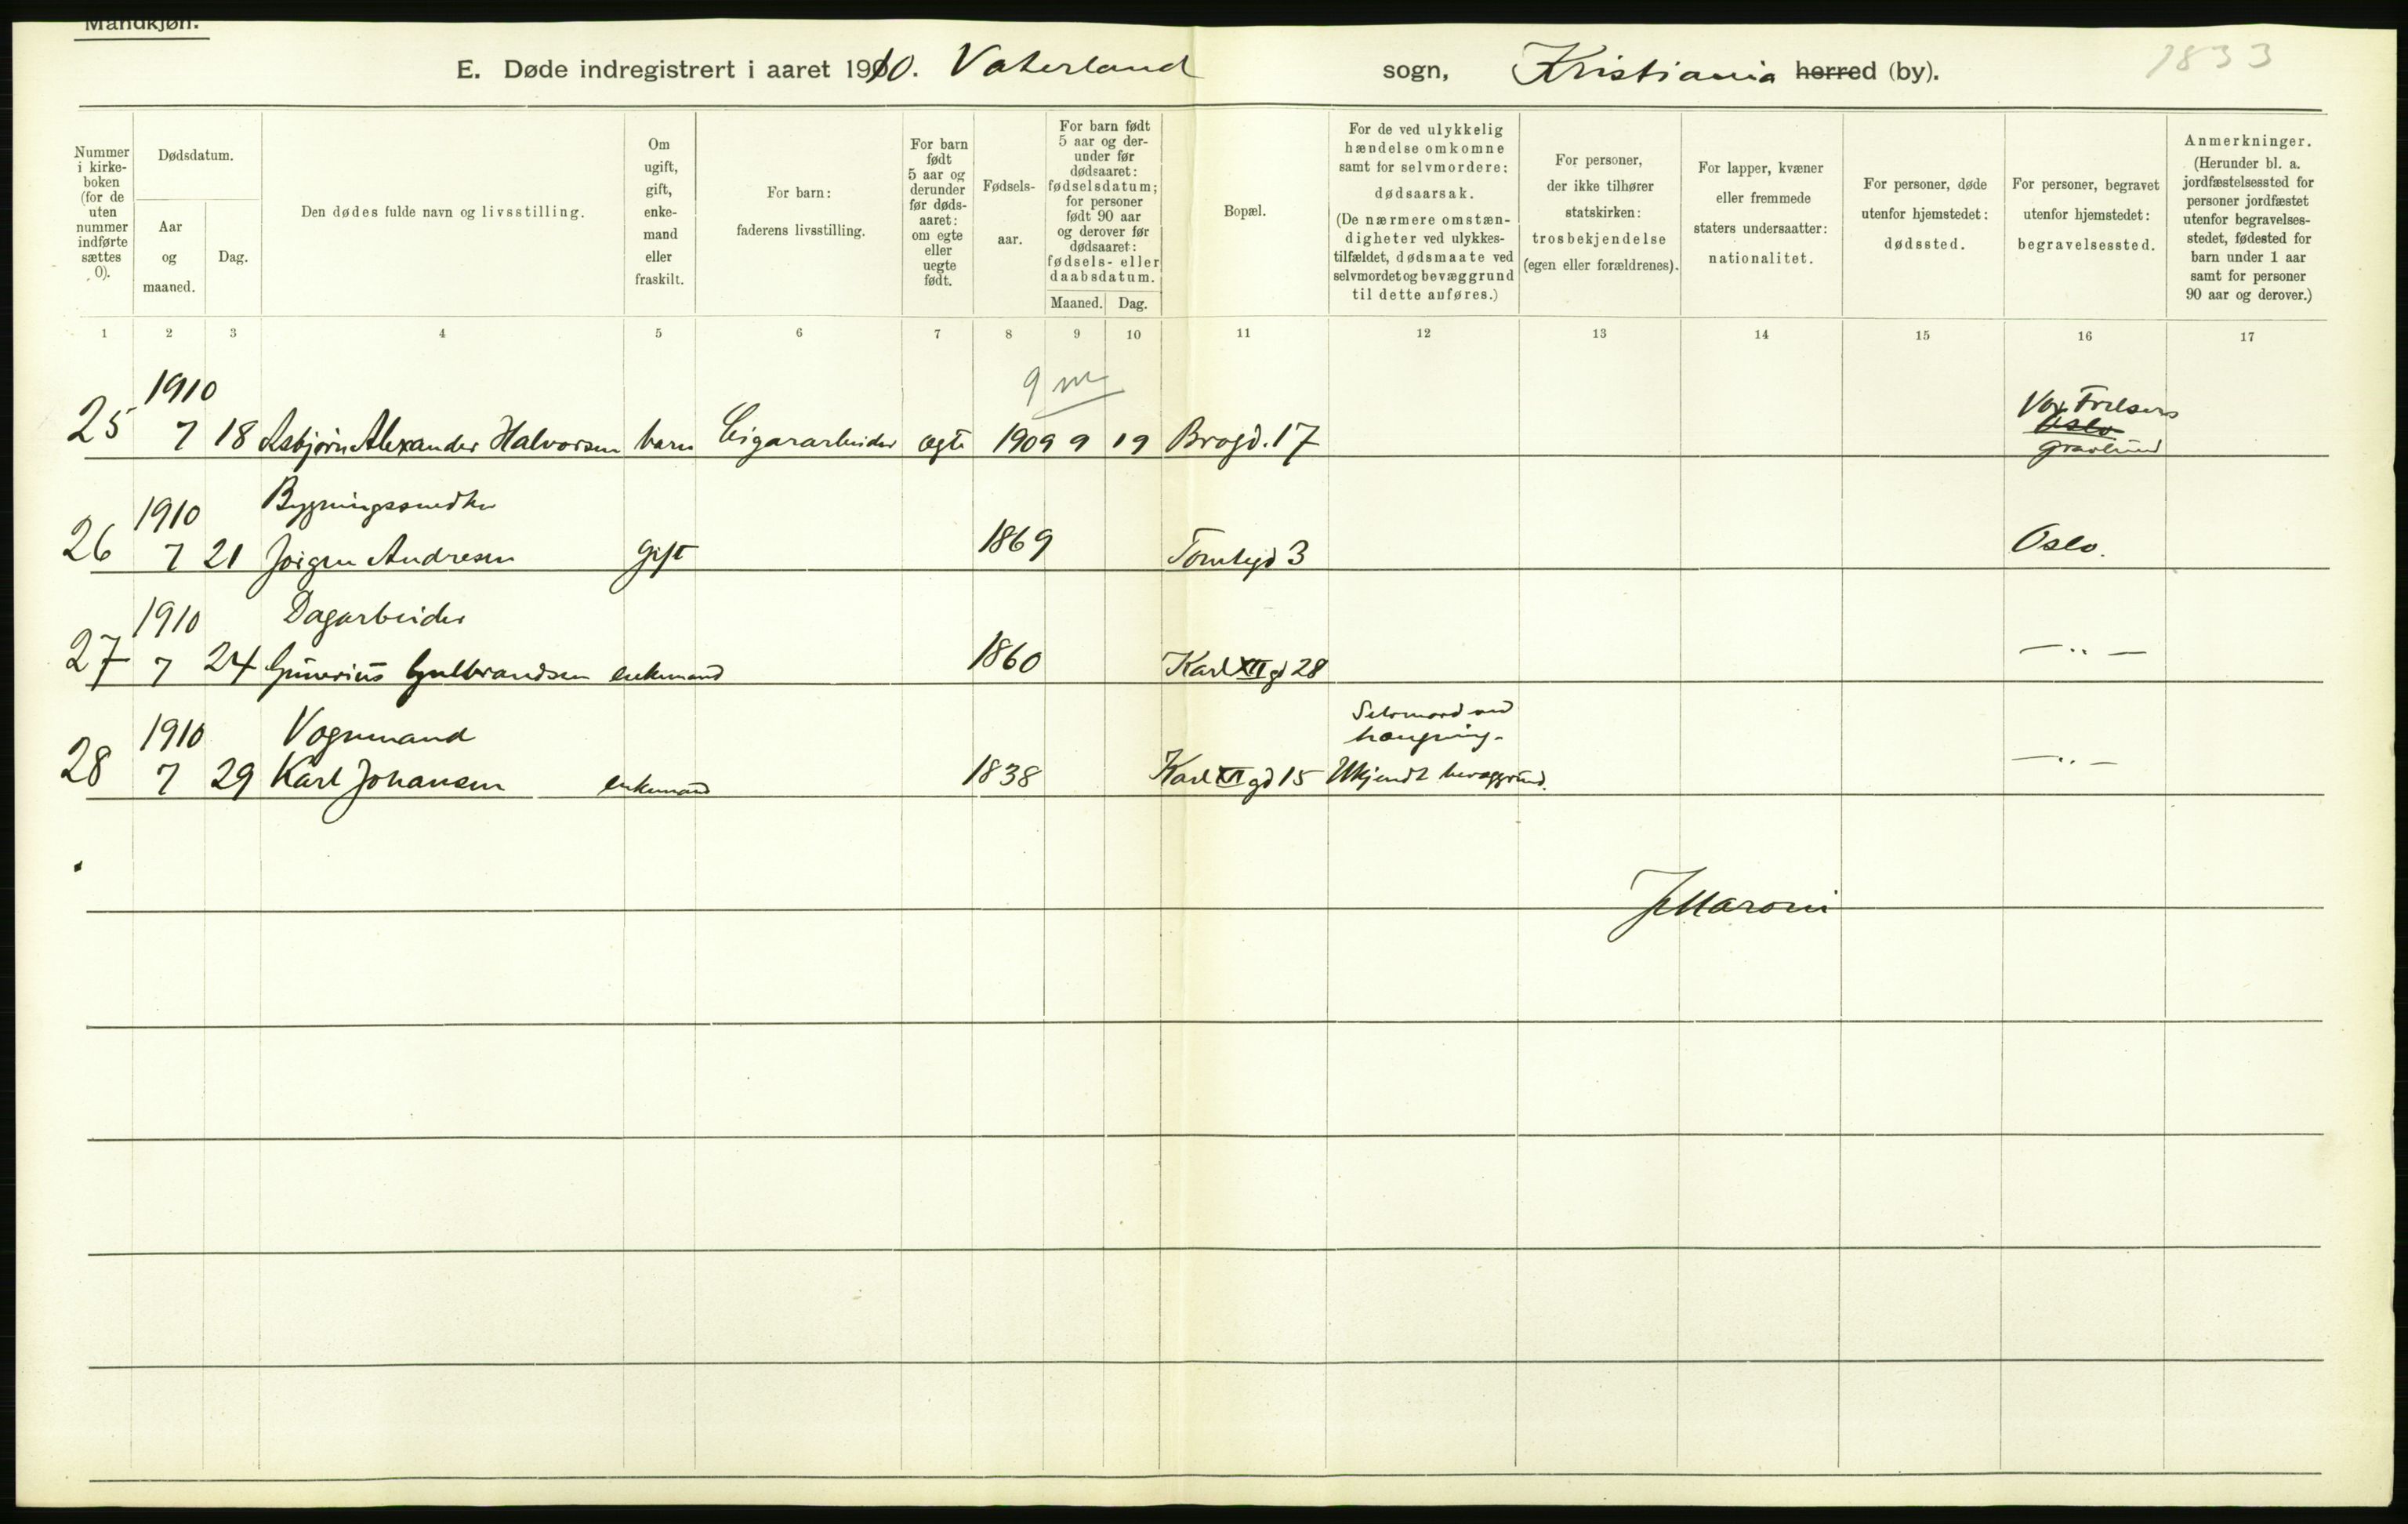 Mandkjøn.
E. Døde indregistrert i aaret 1910. Vaterland sogn, Kristiania herred (by). 1833
Nummer i kirkeboken (for de uten nummer indførte sættes 0).
Dødsdatum.
Aar og maaned.
Dag.
Den dødes fulde navn og livsstilling.
Om ugift, gift, enkemand eller fraskilt.
For barn: faderens livsstilling.
For barn født 5 aar og derunder før dødsaaret: om egte eller uegte født.
Fødselsaar.
For barn født 5 aar og derunder før dødsaaret: fødselsdatum; for personer født 90 aar og derover før dødsaaret: fødsels- eller daabsdatum.
Maaned. Dag.
Bopæl.
For de ved ulykkelig hændelse omkomne samt for selvmordere: dødsaarsak. (De nærmere omstændigheter ved ulykkestilfældet, dødsmaate ved selvmordet og bevæggrund til dette anføres.)
For personer, der ikke tilhører statskirken: trosbekjendelse (egen eller forældrenes).
For lapper, kvæner eller fremmede staters undersaatter: nationalitet.
For personer, døde utenfor hjemstedet: dødssted.
For personer, begravet utenfor hjemstedet: begravelsessted.
Anmerkninger. (Herunder bl. a. jordfæstelsessted for personer jordfæstet utenfor begravelsesstedet, fødested for barn under 1 aar samt for personer 90 aar og derover.)
1 2 3 4 5 6 7 8 9 10 11 12 13 14 15 16 17
1910 9 m Vor Frelsers
Oslo
25 7 18 Asbjørn Alexander Halvorsen barn Cigararbeider egte 1909 9 19 Brogd. 17 gravlund
1910 Bygningssnedker
26 7 21 Jörgen Andresen gift 1869 Tomtegd 3 Oslo.
1910 Dagarbeider
27 7 24 Gunerius Gulbrandsen enkemand 1860 Karl XII gd 28 — " —
1910 Vognmand Selvmord ved
hængning.
28 7 29 Karl Johansen enkemand 1838 Karl XII gd 15 Ukjendt bevæggrund. — " —
J Maroni